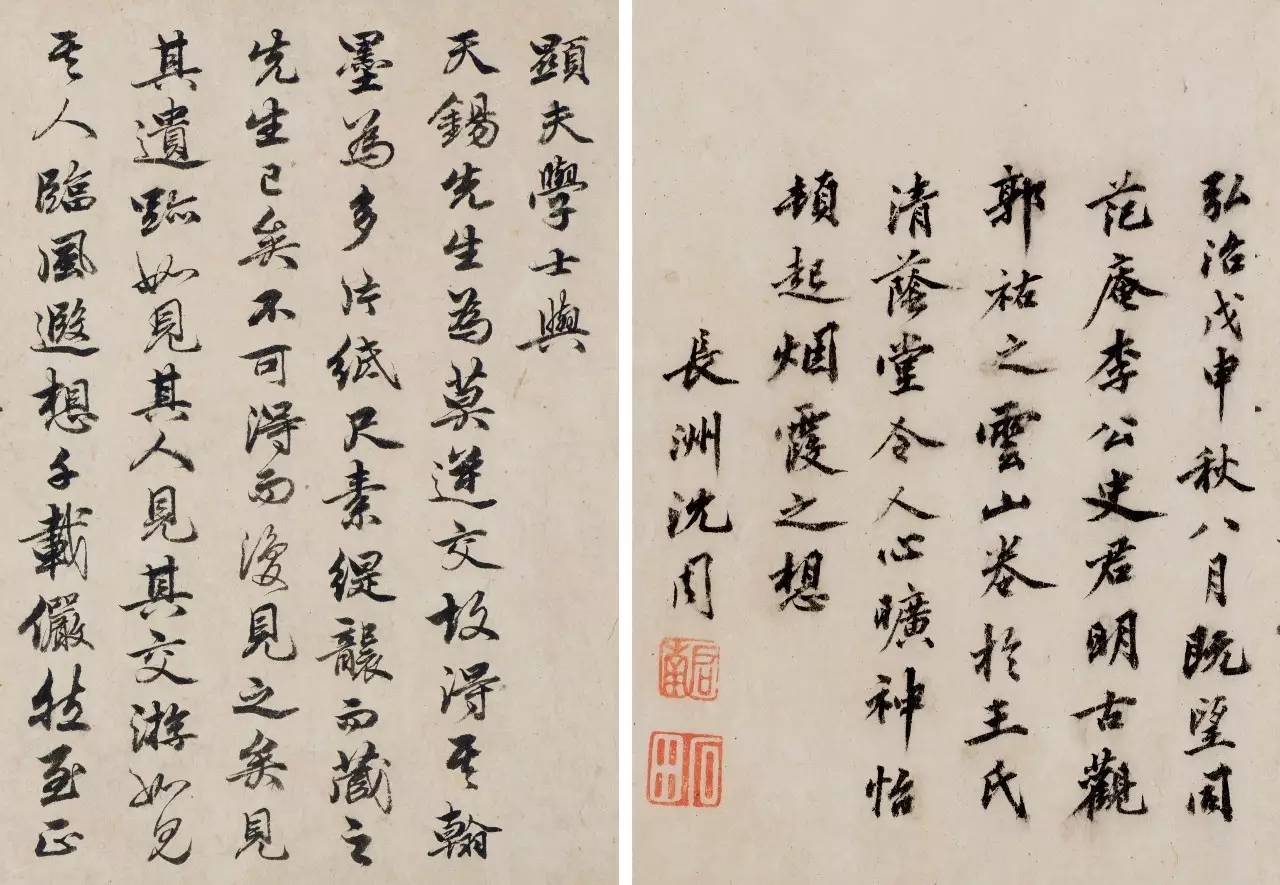 弘治戊申秋八月既望同
范庵李公史君明古觀
郭祐之雲山卷於王氏
清蔭堂令人心曠神怡
頓起烟霞之想
長洲沈周
啟南
石田
顯夫學士與
天錫先生為莫逆交故得其翰
墨為多片紙尺素緹襲而藏之
先生已矣不可得而復見之矣見
其遺跡如見其人見其交游如見
其人臨風遐想千載儼然至正